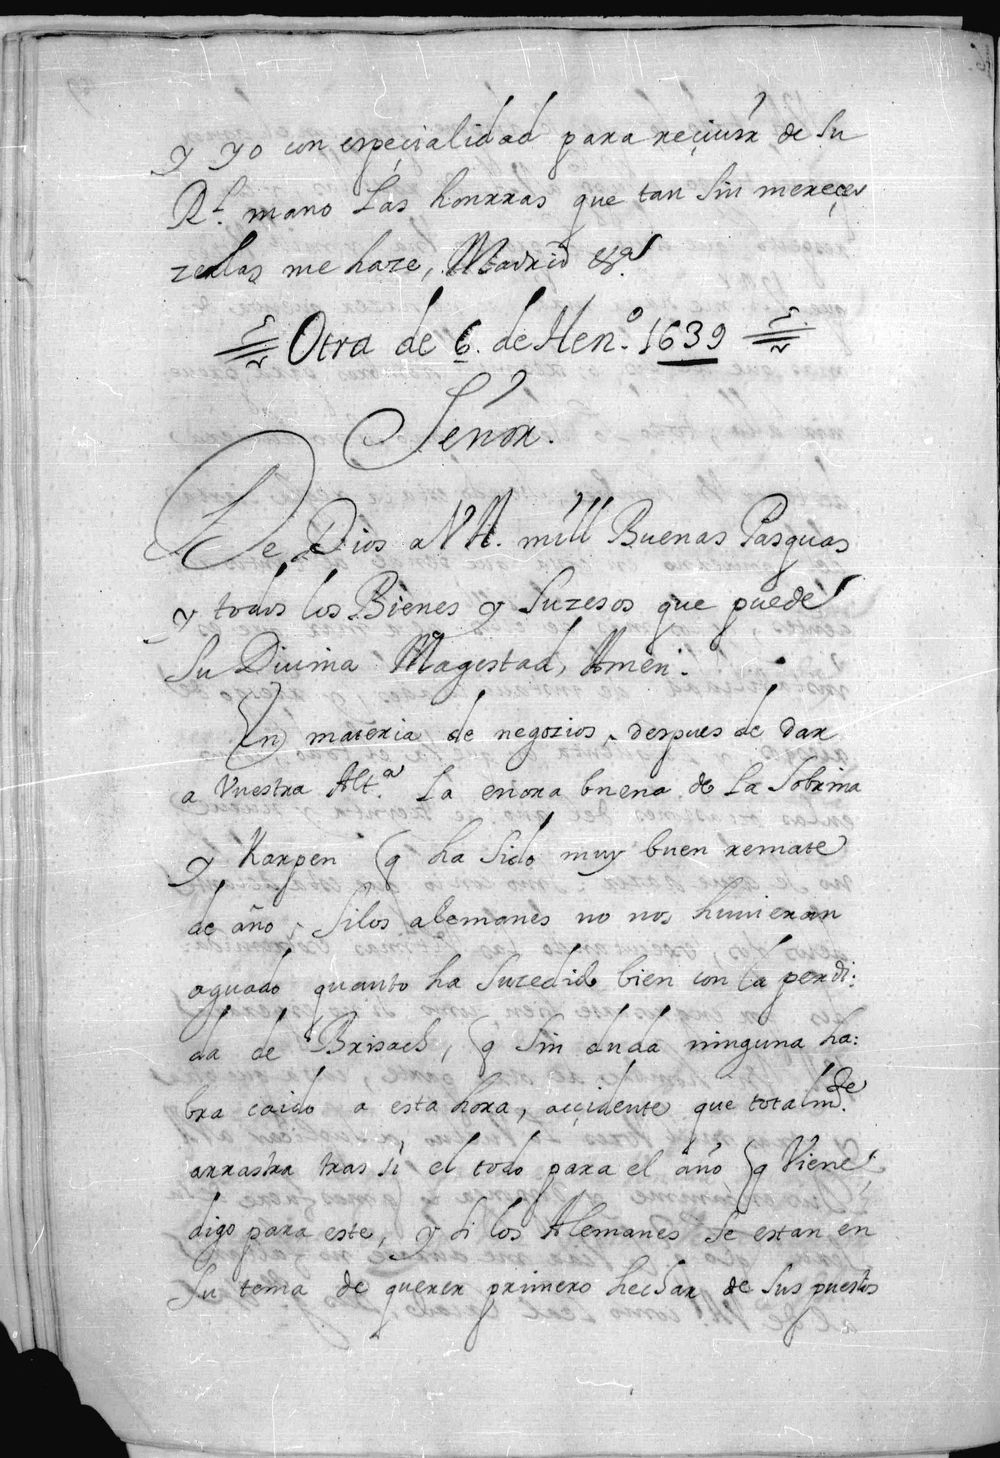 y yo con espeçialidad para reçiuir de su
Rl. mano las honrras que tan sin mereçer
zerlas me haze, Madrid &a.
Otra de 6. de Hen.o 1639
Señor.
De Dios a V A. mill Buenas Pasquas
y todos los Bienes y Suzesos que puede
Su Diuina Magestad, Amen.
En materia de negozios, despues de dar
a Vuestra Alt.a la enora buena de la Sobrina
y Karpen q ha sido muy buen remate
de año, si los alemanes no nos huuieran
aguado quanto ha sucedido bien con la perdi:
da de Brisach, q sin duda ninguna ha:
bra caido a esta hora, acçidente que totalm.de
arrastra tras sì el todo para el año q Viene
digo para este, y si los Alemanes se estan en
su tema de querer primero hechar de sus puestos